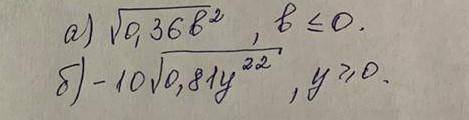 а) √0,36в², в ≤ 0.
б) -10√0,81y²², y ⩾ 0.